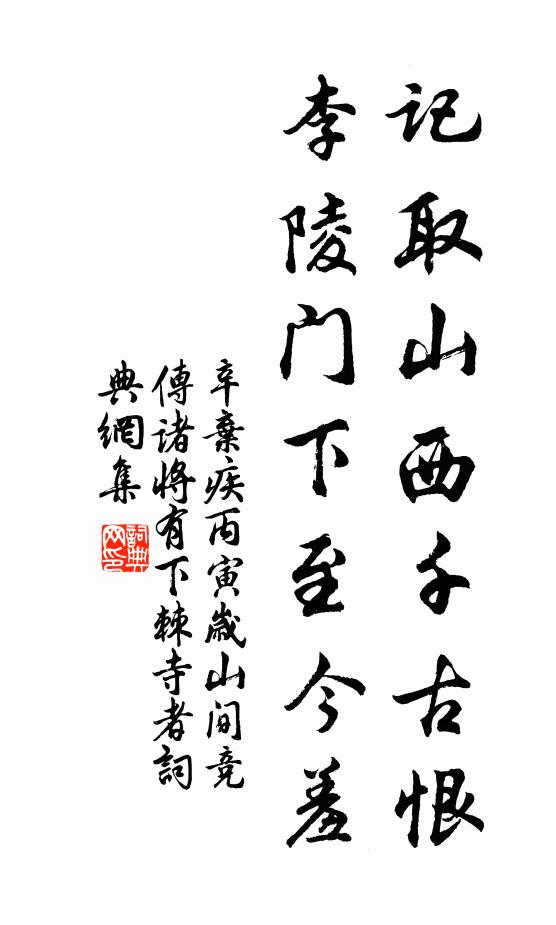 記取山西千古恨
李陵门下至今羞
辛棄疾丙寅歲山间竞
傳诸将有下棘寺者詞
典網集
詞典
网印